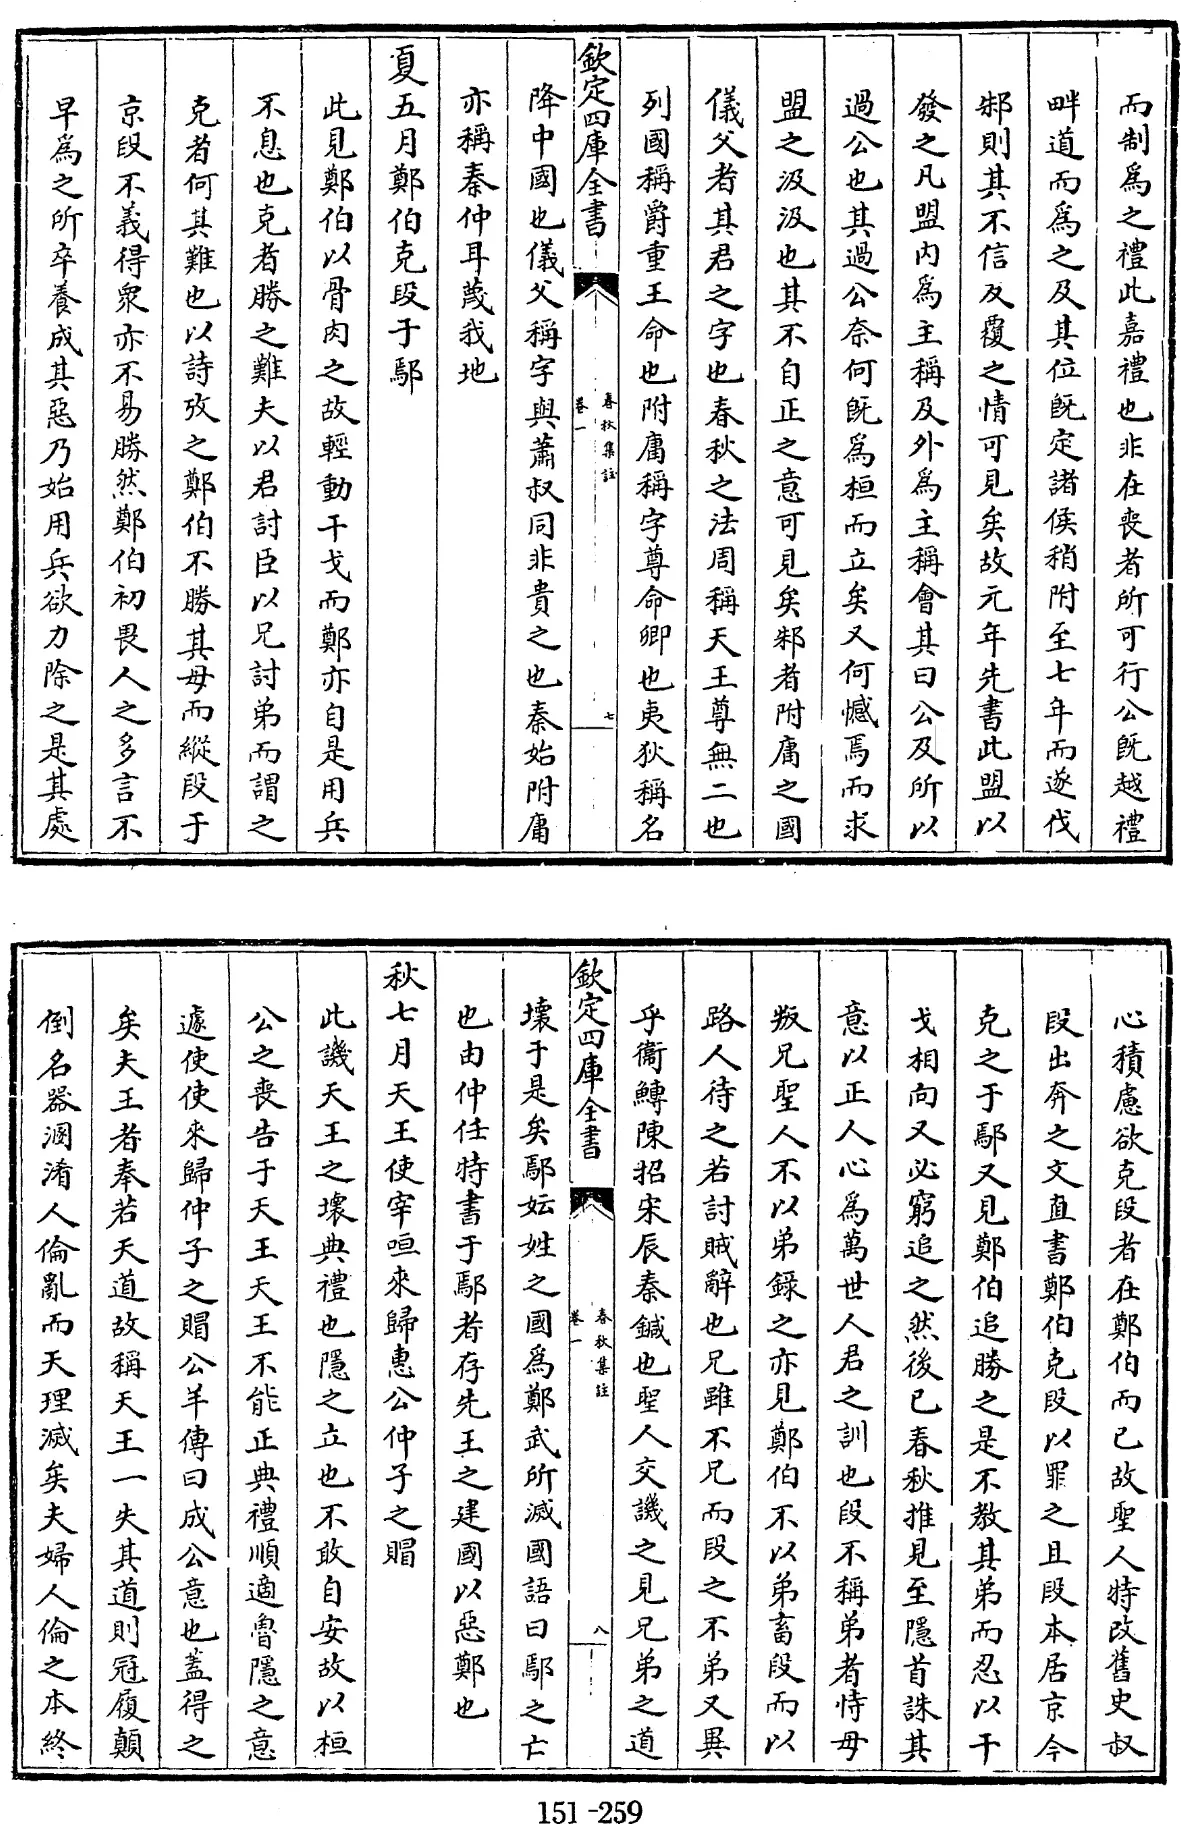 而制為之禮此嘉禮也非在喪者所可行公既越禮
畔道而為之及其位既定諸侯稍附至七年而遂伐
邾則其不信反覆之情可見矣故元年先書此盟以
發之凡盟內為主稱及外為主稱會其曰公及所以
過公也其過公奈何既為桓而立矣又何憾焉而求
盟之汲汲也其不自正之意可見矣邾者附庸之國
儀父者其君之字也春秋之法周稱天王尊無二也
列國稱爵重王命也附庸稱字尊命卿也夷狄稱名
欽定四庫全書
春秋集註
卷一
七
降中國也儀父稱字與蕭叔同非貴之也秦始附庸
亦稱秦仲耳蔑我地
夏五月鄭伯克段于鄢
此見鄭伯以骨肉之故輕動干戈而鄭亦自是用兵
不息也克者勝之難夫以君討臣以兄討弟而謂之
克者何其難也以詩攷之鄭伯不勝其母而縱段于
京段不義得眾亦不易勝然鄭伯初畏人之多言不
早為之所卒養成其惡乃始用兵欲力除之是其處
心積慮欲克段者在鄭伯而已故聖人特改舊史叔
段出奔之文直書鄭伯克段以罪之且段本居京今
克之于鄢又見鄭伯追勝之是不教其弟而忍以干
戈相向又必窮追之然後已春秋推見至隱首誅其
意以正人心為萬世人君之訓也段不稱弟者恃母
叛兄聖人不以弟錄之亦見鄭伯不以弟畜段而以
路人待之若討賊辭也兄雖不兄而段之不弟又異
乎衞鱄陳招宋辰秦鍼也聖人交譏之見兄弟之道
欽定四庫全書
春秋集註
卷一
八
壞于是矣鄢妘姓之國為鄭武所滅國語曰鄢之亡
也由仲任特書于鄢者存先王之建國以惡鄭也
秋七月天王使宰咺來歸惠公仲子之賵
此譏天王之壞典禮也隱之立也不敢自安故以桓
公之喪告于天王天王不能正典禮順適魯隱之意
遽使使來歸仲子之賵公羊傳曰成公意也蓋得之
矣夫王者奉若天道故稱天王一失其道則冠履顛
倒名器溷淆人倫亂而天理滅矣夫婦人倫之本終
151-259